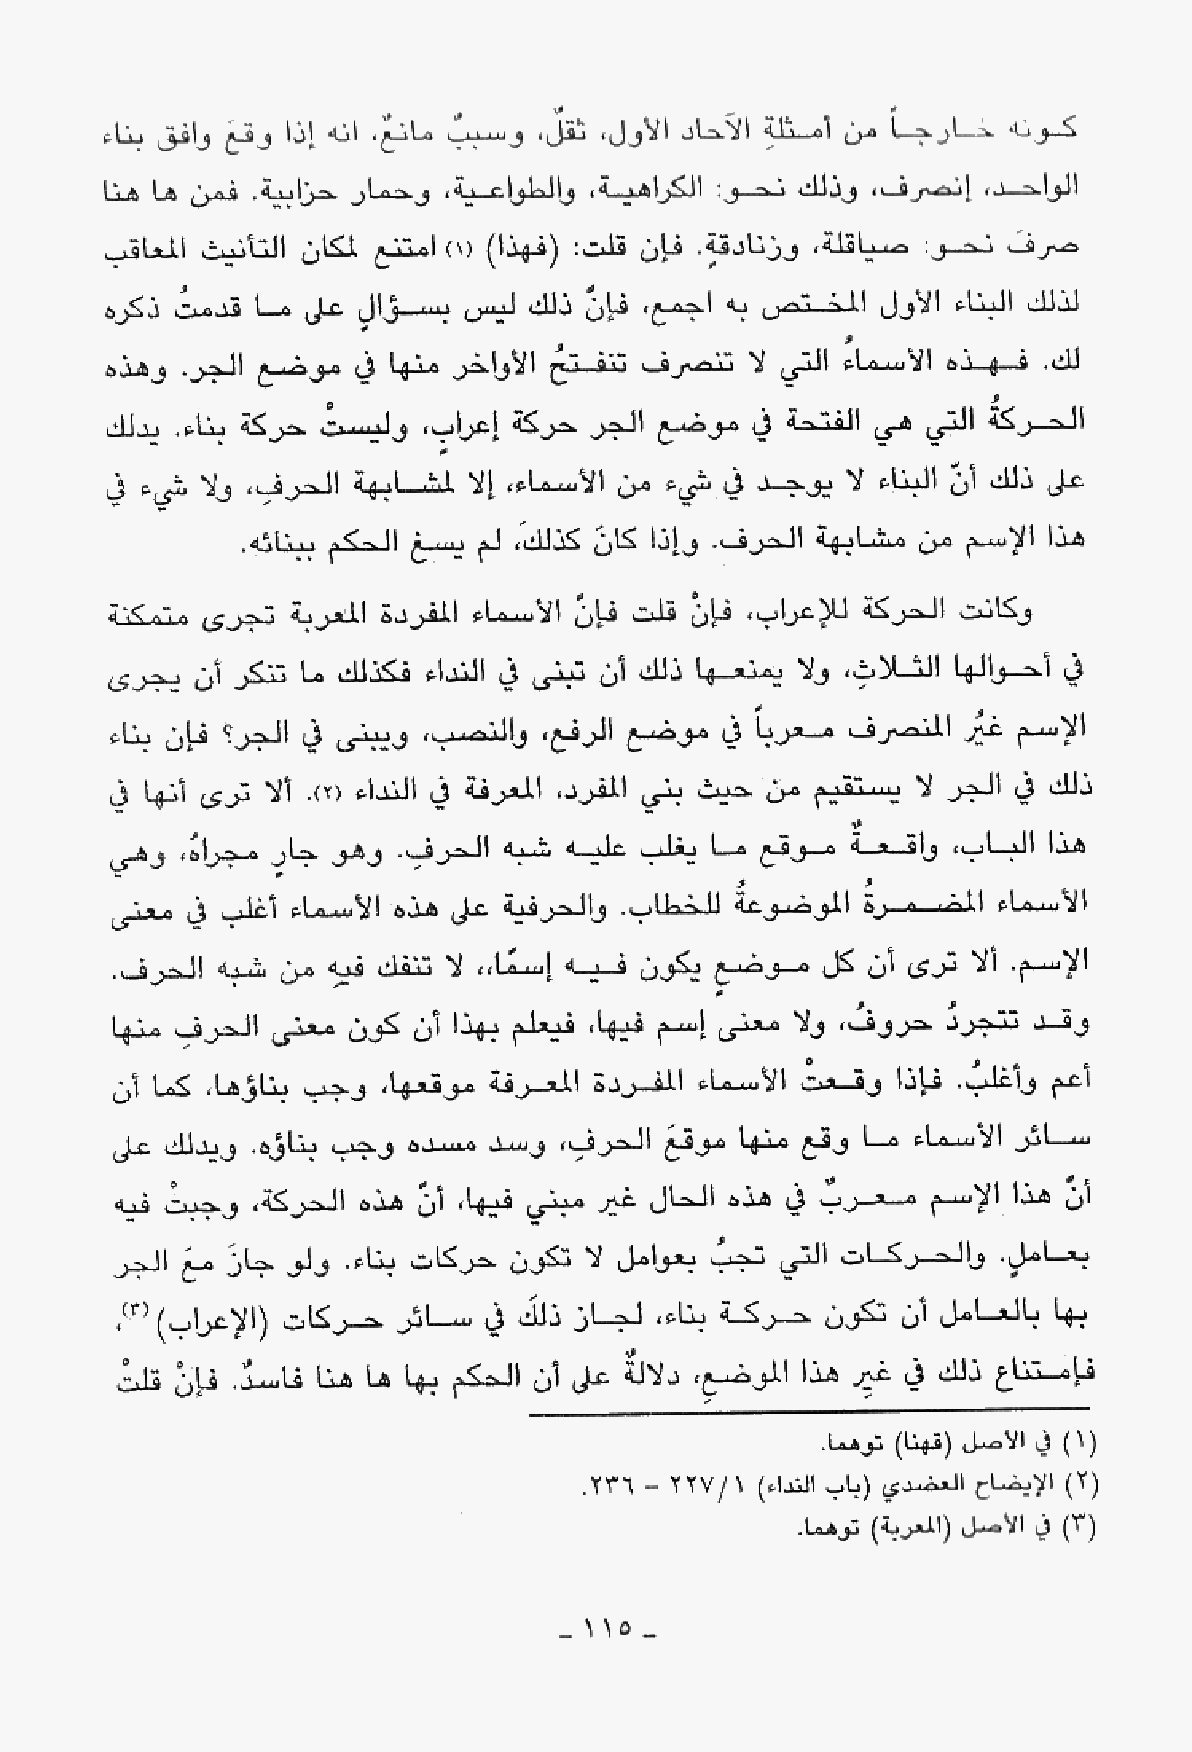 كونه خارجاً من أمثلةِ الآحاد الأول، ثقلٌ، وسببٌ مانعٌ. انه إذا وقعَ وافق بناء
الواحد، إنصرف، وذلك نحو: الكراهية، والطواعية، وحمار حزابية. فمن ها هنا
صرفَ نحو: صياقلة، وزنادقةٍ. فإن قلت: (فهذا) (١) امتنع لمكان التأنيث المعاقب
لذلك البناء الأول المختص به اجمع، فإنَّ ذلك ليس بسؤالٍ على ما قدمتُ ذكره
لك. فهذه الأسماءُ التي لا تنصرف تنفتحُ الأواخر منها في موضع الجر. وهذه
الحركةُ التي هي الفتحة في موضع الجر حركة إعرابٍ، وليستْ حركة بناء. يدلك
على ذلك أنّ البناء لا يوجد في شيء من الأسماء، إلا لمشابهة الحرفِ، ولا شيء في
هذا الإسم من مشابهة الحرف. وإذا كانَ كذلكَ، لم يسغ الحكم ببنائه.
وكانت الحركة للإعراب، فإنْ قلت فإنَّ الأسماء المفردة المعربة تجرى متمكنة
في أحوالها الثلاثِ، ولا يمنعها ذلك أن تبنى في النداء فكذلك ما تنكر أن يجرى
الإسم غيُر المنصرف معرباً في موضع الرفع، والنصب، ويبنى في الجر؟ فإن بناء
ذلك في الجر لا يستقيم من حيث بني المفرد، المعرفة في النداء (٢). ألا ترى أنها في
هذا الباب، واقعةٌ موقع ما يغلب عليه شبه الحرفِ. وهو جارٍ مجراهُ، وهي
الأسماء المضمرةُ الموضوعةُ للخطاب. والحرفية على هذه الأسماء أغلب في معنى
الإسم. ألا ترى أن كل موضعٍ يكون فيه إسمًا،، لا تنفك فيهِ من شبه الحرف.
وقد تتجردُ حروفُ، ولا معنى إسم فيها، فيعلم بهذا أن كون معنى الحرفِ منها
أعم وأغلبُ. فإذا وقعتْ الأسماء المفردة المعرفة موقعها، وجب بناؤها، كما أن
سائر الأسماء ما وقع منها موقعَ الحرفِ، وسد مسده وجب بناؤه. ويدلك على
أنَّ هذا الإسم معربٌ في هذه الحال غير مبني فيها، أنَّ هذه الحركة، وجبتْ فيه
بعاملٍ. والحركات التي تجبُ بعوامل لا تكون حركات بناء. ولو جازَ معَ الجر
بها بالعامل أن تكون حركة بناء، لجاز ذلكَ في سائر حركات (الإعراب) (٣)،
فإمتناع ذلك في غيرِ هذا الموضعِ، دلالةٌ على أن الحكم بها ها هنا فاسدٌ. فإنْ قلتْ
(١) في الأصل (قهنا) توهما.
(٢) الإيضاح العضدي (باب النداء) ١/ ٢٢٧ – ٢٣٦.
(٣) في الأصل (المعربة) توهما.
_ ١١٥ _